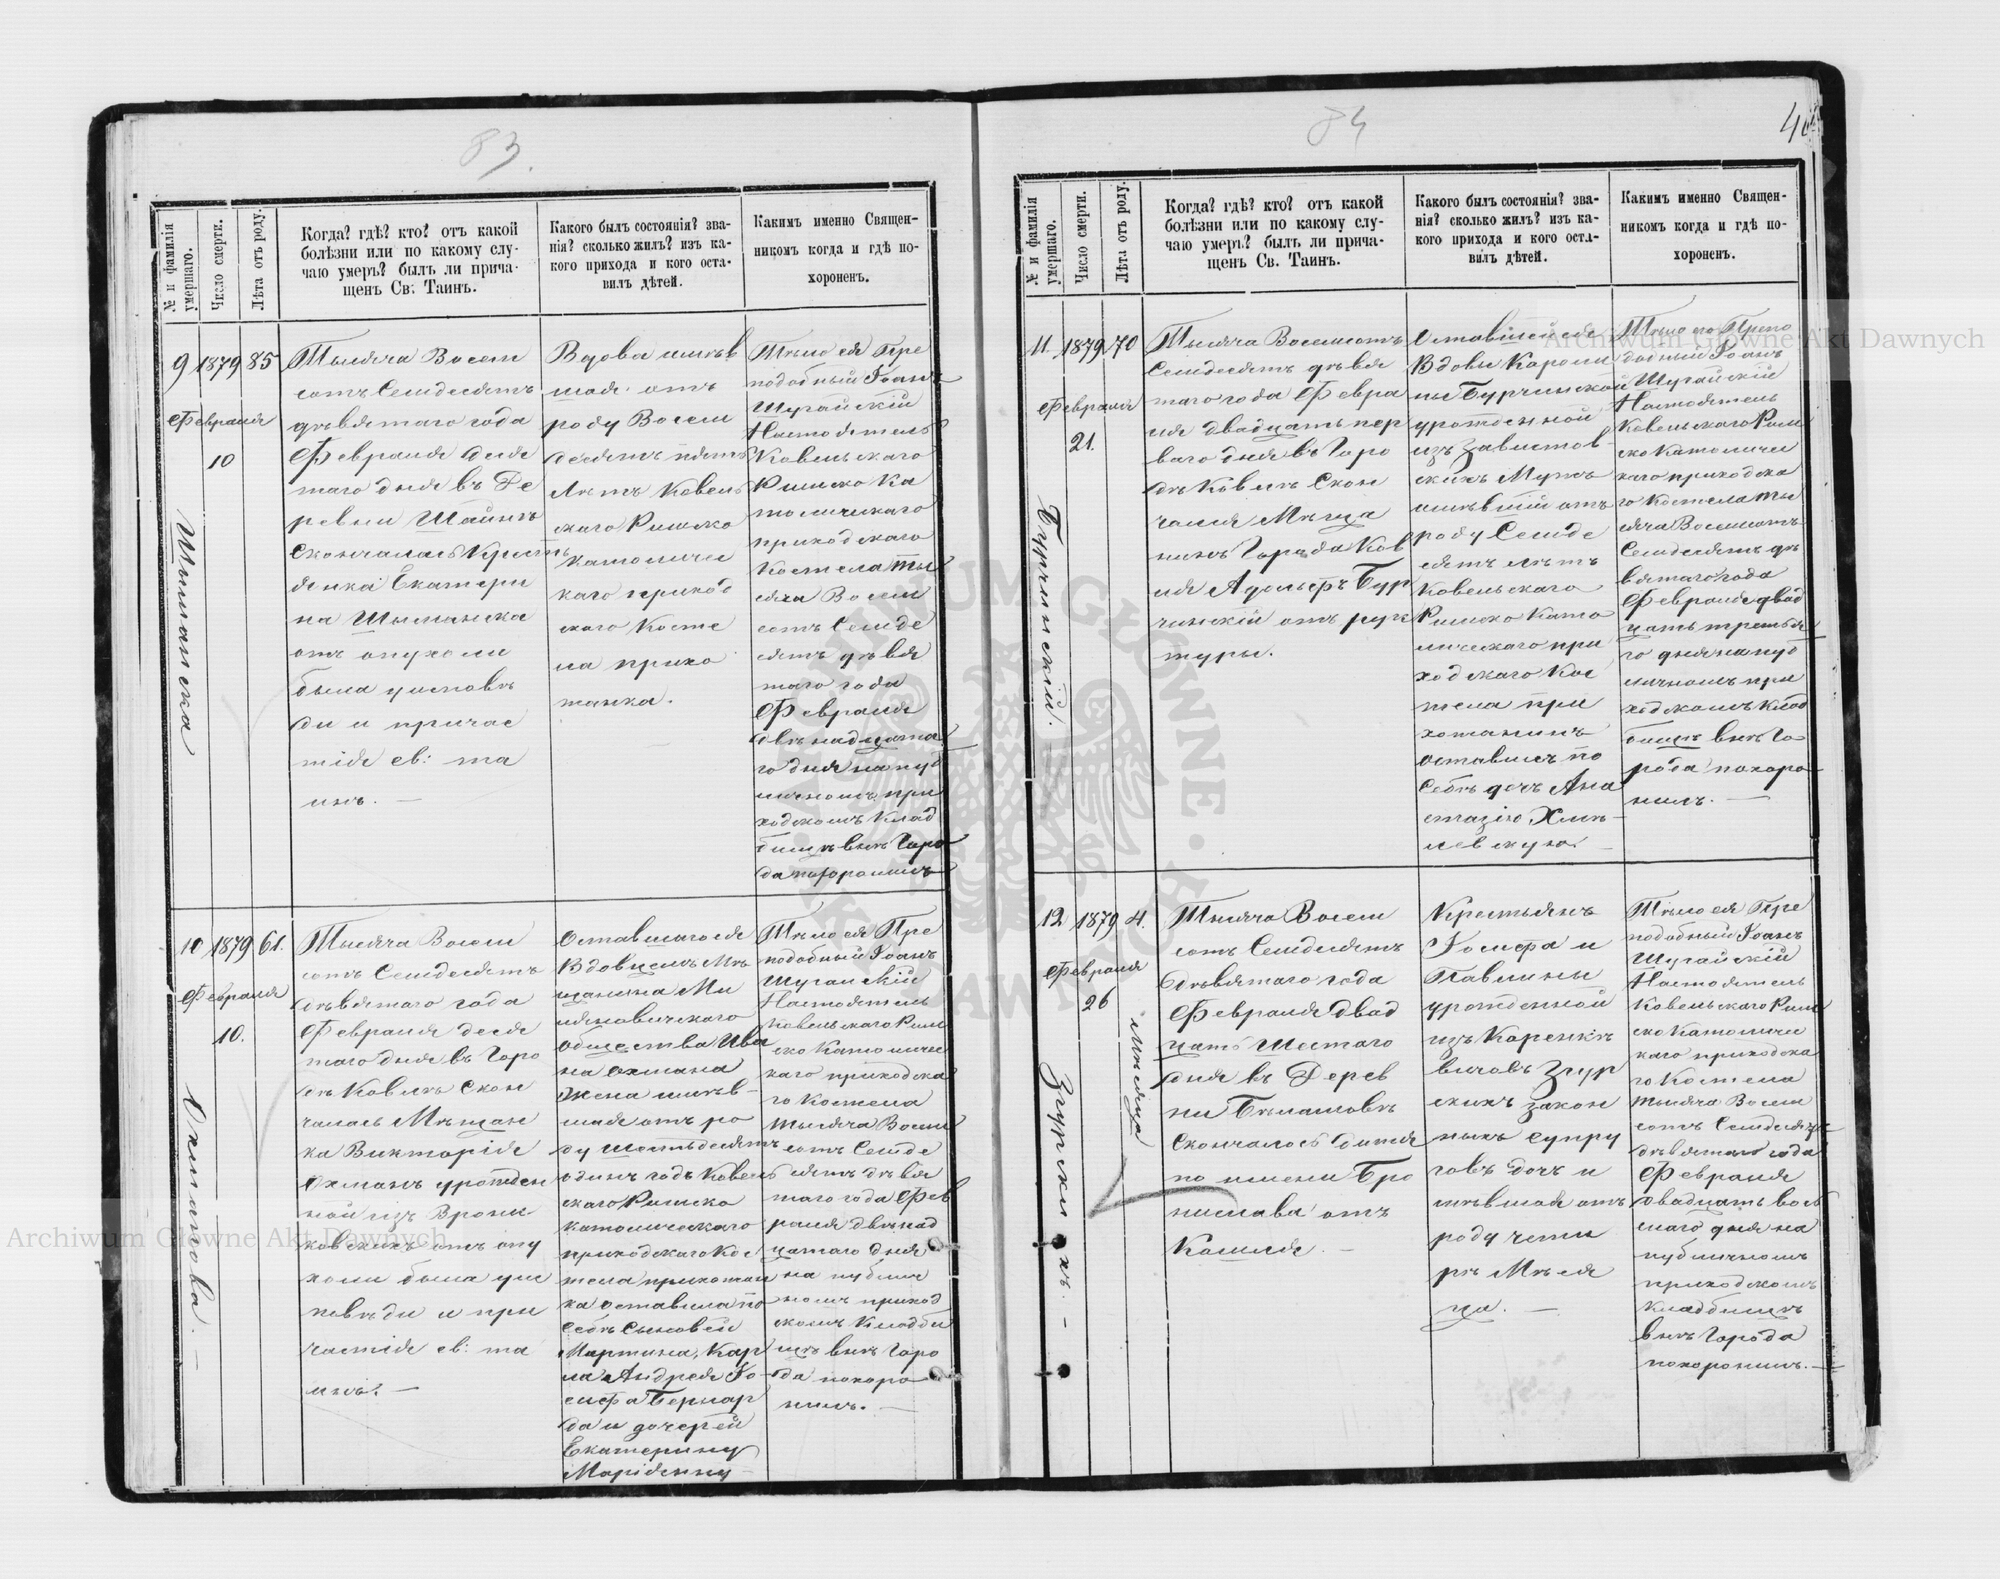 83.
№ и фамилія умершаго.
Число смерти.
Лѣта отъ роду.
Когда? гдѣ? кто? отъ какой
болѣзни или по какому слу-
чаю умеръ? былъ ли прича-
щенъ Св. Таинъ.
Какого былъ состоянія? зва-
нія? сколько жилъ? изъ ка-
кого прихода и кого оста-
вилъ дѣтей.
Какимъ именно Священ-
никомъ когда и гдѣ по-
хороненъ.
9
1879
85
Февраля
10
Шыманска
Тысяча Восем
сотъ Семдесятъ
дѣвятаго года
Февраля деся
таго дня въ Де
ревни Шайнѣ
Скончалась Кресть
янка Екатери
на Шыманска
отъ опухоли
была уисповѣ
ди и причас
тія св: та
инъ. —
Вдова имѣв
шая отъ
роду Восем
десятъ пять
Лѣтъ Ковель
скаго Римско
католичес
каго приход
скаго Косте
ла прихо
жанка.
Тѣло ея Пре
подобный Іоанъ
Шугайскій
Настоятель
Ковельскаго
Римско Ка
толическаго
приходскаго
Костела ты
сяча Восем
сотъ Семде
сятъ дѣвя
таго года
Февраля
двѣнадцата
го дня на пуб
личномъ при
ходскомъ клад
бищѣ внѣ Горо
да похоронилъ
10
1879
61.
Февраля
10.
Охманова. —
Тысяча Восем
сотъ Семдесятъ
дѣвятаго года
Февраля деся
таго дня въ Горо
дѣ Ковлѣ Скон
чалась Мѣщан
ка Викторія
Охманъ урожден
ной изъ Врони
ковскихъ отъ опу
холи была уис
повѣди и при
частія св: та
инъ. —
Оставшагося
Вдовцемъ Мѣ
щанина Ми
ляновичскаго
общества Ива
на Охмана
Жена имѣв-
шая отъ ро
ду Шестьдесятъ
одинъ годъ Ковель
скаго Римско
католическаго
приходскаго Кос
тела прихожан
ка оставила по
себѣ сыновей
Мартина, Кар
ла Андрея Іо
сифа Бернар
да и дочерей
Екатерину
Маріянну
Тѣло ея Пре
подобный Іоанъ
Шугайскій
Настоятель
Ковельскаго Рим
ско Католичес
каго приходска
го Костела
тысяча Восем
сотъ Семде
сятъ дѣвя
таго года Фев
раля двѣнад
цатаго дня
на публич
номъ приход
скомъ Кладби
щѣ внѣ Горо
да похоро
нилъ. —
84
№ и фамилія умершаго.
Число смерти.
Лѣта отъ роду.
Когда? гдѣ? кто? отъ какой
болѣзни или по какому слу-
чаю умеръ? былъ ли прича-
щенъ Св. Таинъ.
Какого былъ состоянія? зва-
нія? сколько жилъ? изъ ка-
кого прихода и кого оста-
вилъ дѣтей.
Какимъ именно Священ-
никомъ когда и гдѣ по-
хороненъ.
11.
1879
70
Февраля
21.
Бурчинскій.
Тысяча Восемсотъ
Семдесятъ дѣвя
таго года Февра
ля двадцать пер
ваго дня въ Горо
дѣ Ковлѣ Скон
чался Мѣща
нинъ Города Ков
ля Адольфъ Бур
чинскій отъ руп
туры.
Оставшейся
Вдовы Кароли
ны Бурчинской
урожденной
изъ Завистов-
скихъ Мужъ
имѣвшій отъ
роду Семде
сятъ лѣтъ
Ковельскаго
Римско Като
лическаго при
ходскаго Кос
тела при
хожанинъ
оставилъ по
Себѣ дочъ Ана
стазію Хмѣ-
левскую.
Тѣло его Препо
добный Іоанъ
Шугайскій
Настоятель
Ковельскаго Рим
ско Католичес
каго приходска
го Костела ты
сяча Восемсотъ
Семдесятъ дѣ
вятаго года
Февраля двад
цать третья
го дня на пуб
личномъ при
ходскомъ Клад
бищѣ внѣ Го
рода похоро
нилъ. —
12
1879
4.
мѣсяца
Февраля
26
Згурскихъ. —
Тысяча Восем
сотъ Семдесятъ
дѣвятаго года
Февраля двад
цать Шестаго
дня въ Дерев
ни Бѣлашовѣ
Скончалось дитя
по имени Бро
нислава отъ
Кашля. —
Крестьянъ
Іосифа и
Павлины
урожденной
изъ Каренке
вичовъ Згур
скихъ закон
ныхъ супру
говъ дочъ и
мѣвшая отъ
роду четы
рѣ Мѣся
ца. —
Тѣло ея Пре
подобный Іоанъ
Шугайскій
Настоятель
Ковельскаго Рим
ско Католичес
каго приходска
го Костела
тысяча Восем
сотъ Семдесятъ
дѣвятаго года
Февраля
двадцать вось
маго дня на
публичномъ
приходскомъ
кладбищѣ
внѣ Города
похоронилъ. —
Archiwum Główne Akt Dawnych
Archiwum Główne Akt Dawnych